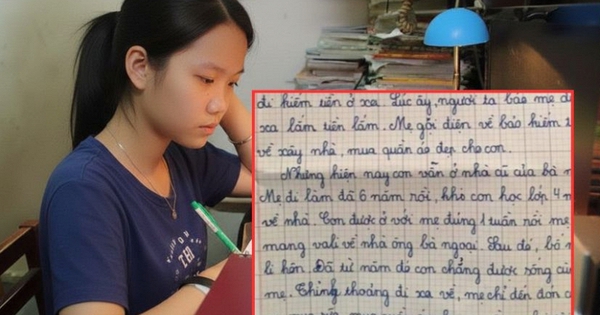 đi kiếm tiền ở xa. Lúc ấy, người ta bảo mẹ đ
xa lắm tiền lắm. Mẹ gọi điện về bảo kiếm
về xây nhà, mua quần áo đẹp cho con.
Nhưng hiện nay con vẫn ở nhà cũ của bà n
Mẹ đi làm đã 6 năm rồi, khi con học lớp 4 m
về nhà. Con được ở với mẹ đúng 1 tuần rồi mẹ
mang vali về nhà ông bà ngoại. Sau đó, bố m
li hôn. Đã từ năm đó con chẳng được sống cù
mẹ. Thỉnh thoảng đi xa về, mẹ chỉ đến đón c